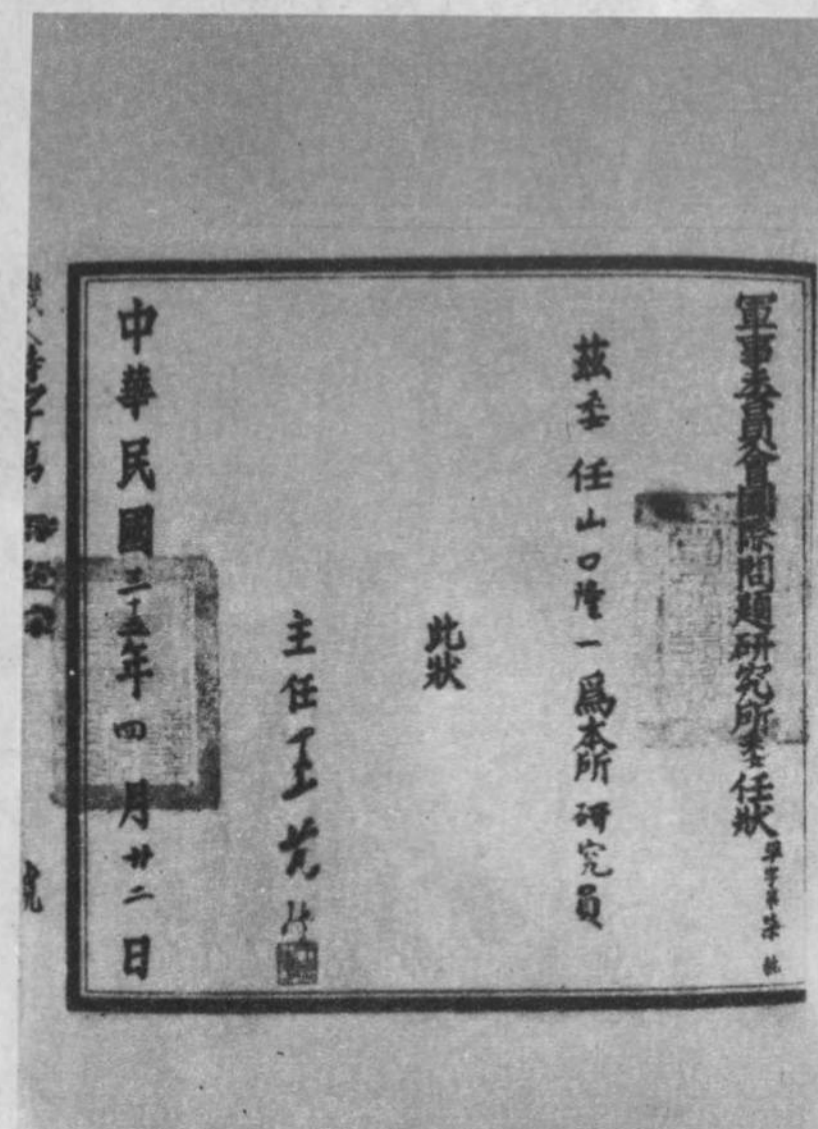 軍事委員會國際問題研究所委任狀
茲委任山口隆一爲本所研究員
此狀
主任王芃生
中華民國三十五年四月廿二日
號